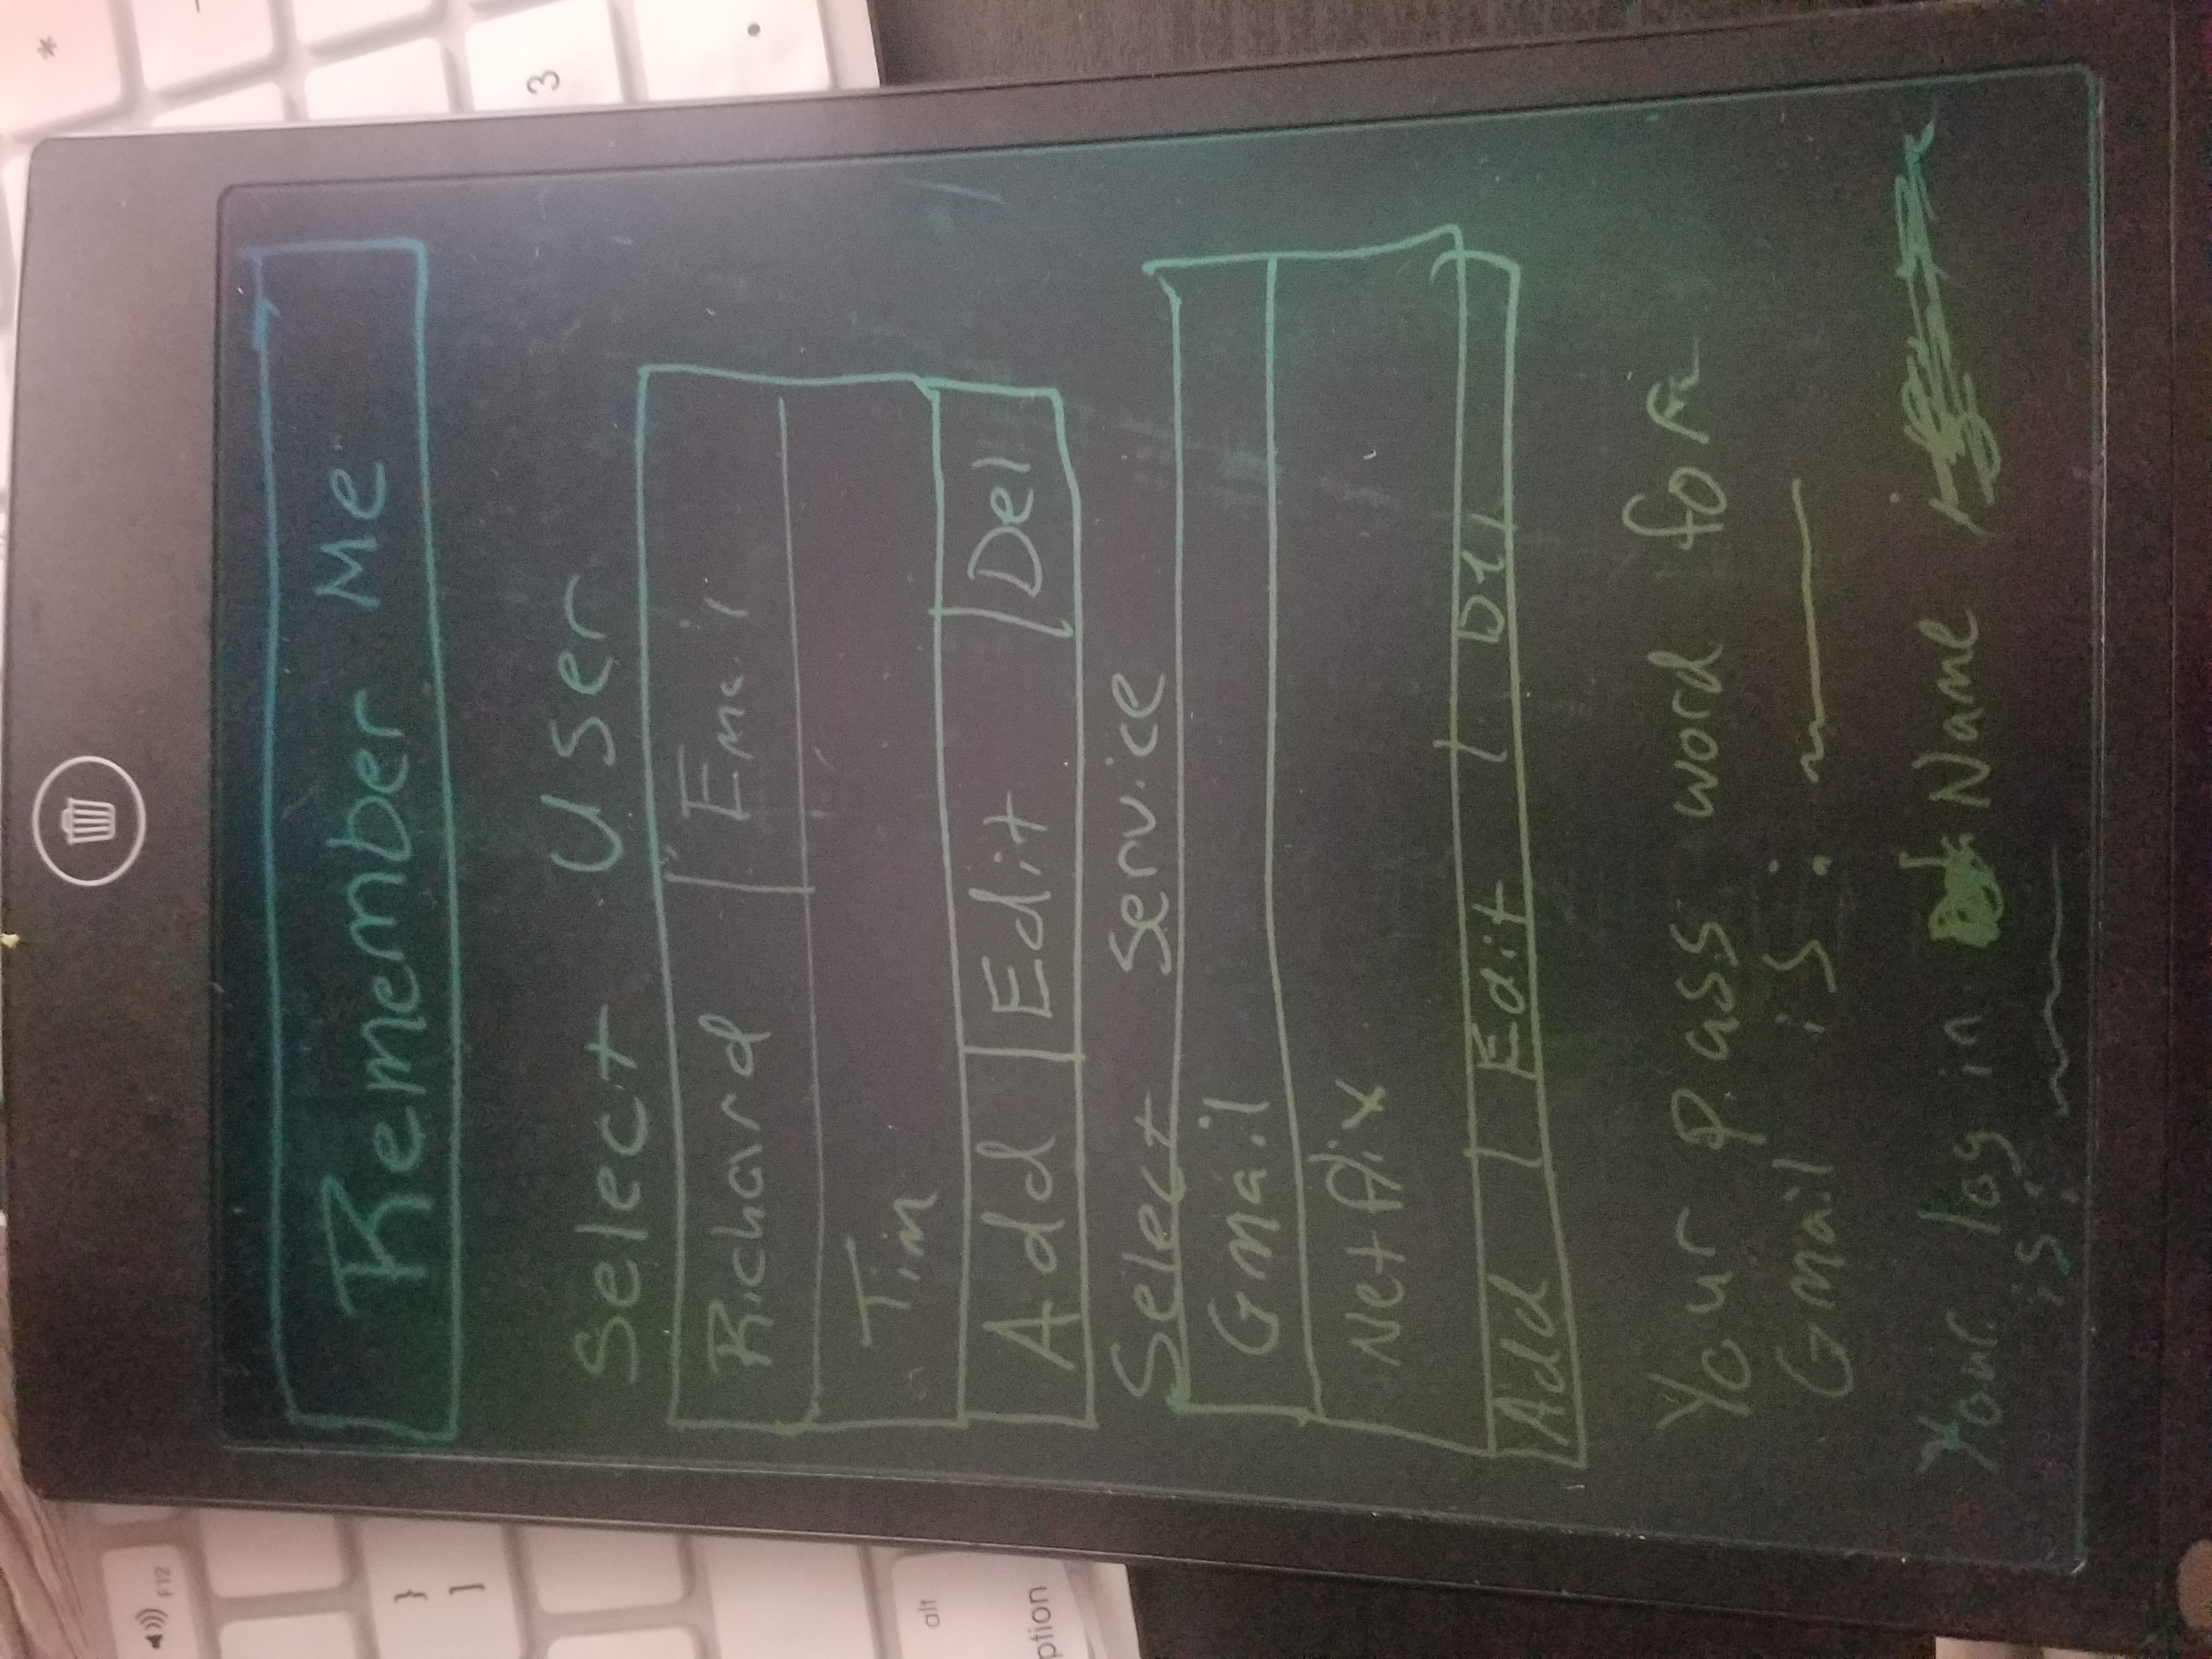 F12
*
}
]
3
.
alt
ption
Remember Me
Select User
Richard Email
Tim
Add Edit Del
Select Service
Gmail
Netflix
Add Edit Del
Your pass word for
Gmail is :
Your log in Name
is :